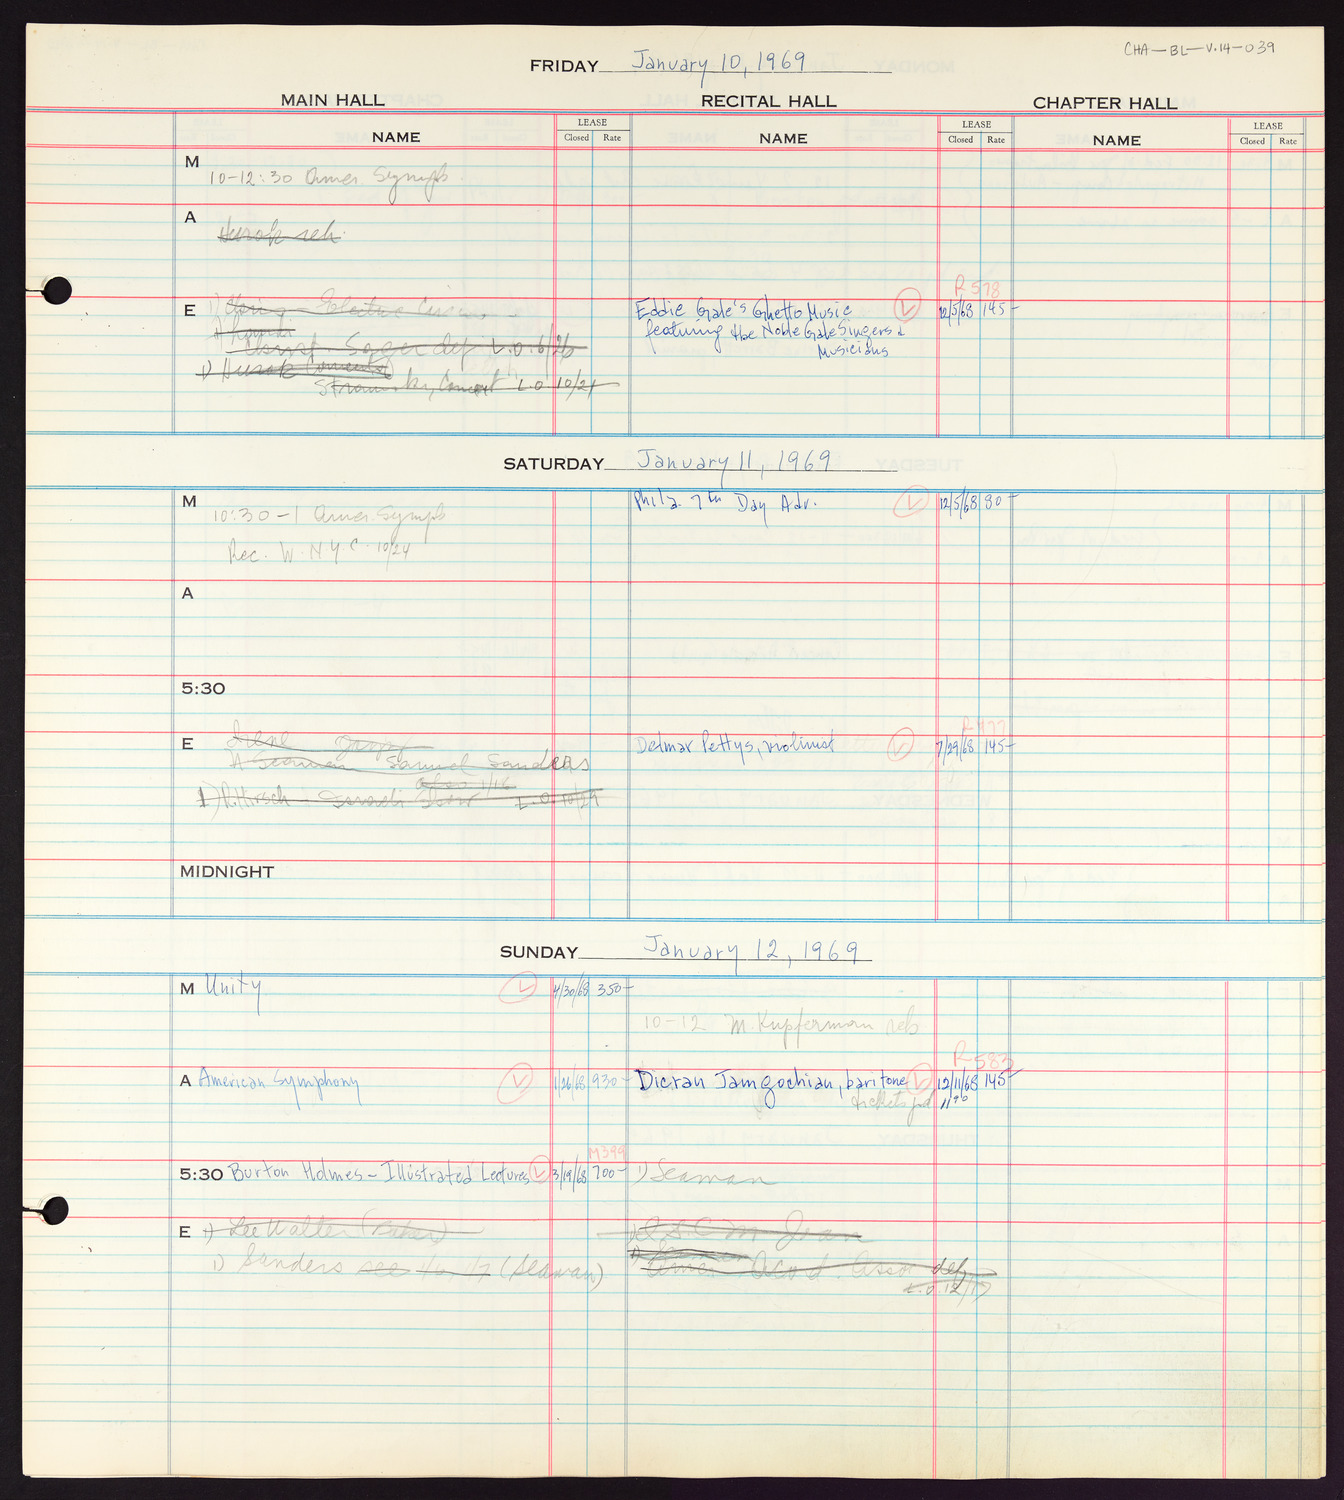 CHA-BL-V.14-039
FRIDAY January 10, 1969
MAIN HALL RECITAL HALL CHAPTER HALL
NAME LEASE Closed Rate NAME LEASE Closed Rate NAME LEASE Closed Rate
M
10-12:30 Amer. Symph.
A
Hurok reh.
R578
E 1) Electric Circus Eddie Gale's Ghetto Music 12/5/68 145-
featuring the Noble Gale Singers &
Musicians
Sager def L.O. 6/26
1) Hurok Concerts
Concert L.O. 10/21
SATURDAY January 11, 1969
M Phila. 7th Day Adv. 12/5/68 90-
10:30-1 Amer. Symph
Rec. W.N.Y.C. 10/24
A
5:30
R477
E Irene Delmar Pettys, violinist 7/29/68 145-
Seaman Samuel Sanders
after 1/16
1) P. Hirsch - Israeli Show L.O. 10/29
MIDNIGHT
SUNDAY January 12, 1969
M Unity 4/30/68 350-
10-12 M. Kupferman reh
R583
A American Symphony 1/26/68 930- Dicran Jamgochian, baritone 12/11/68 145-
tickets pd 11
M399
5:30 Burton Holmes - Illustrated Lectures 3/19/68 700- 1) Seaman
E 1) Lee Walter I.S.C.M. Jean
1) Sanders see 1/6, 1/7 (Seaman) Amer. Accord. Assoc def
L.O. 12/17